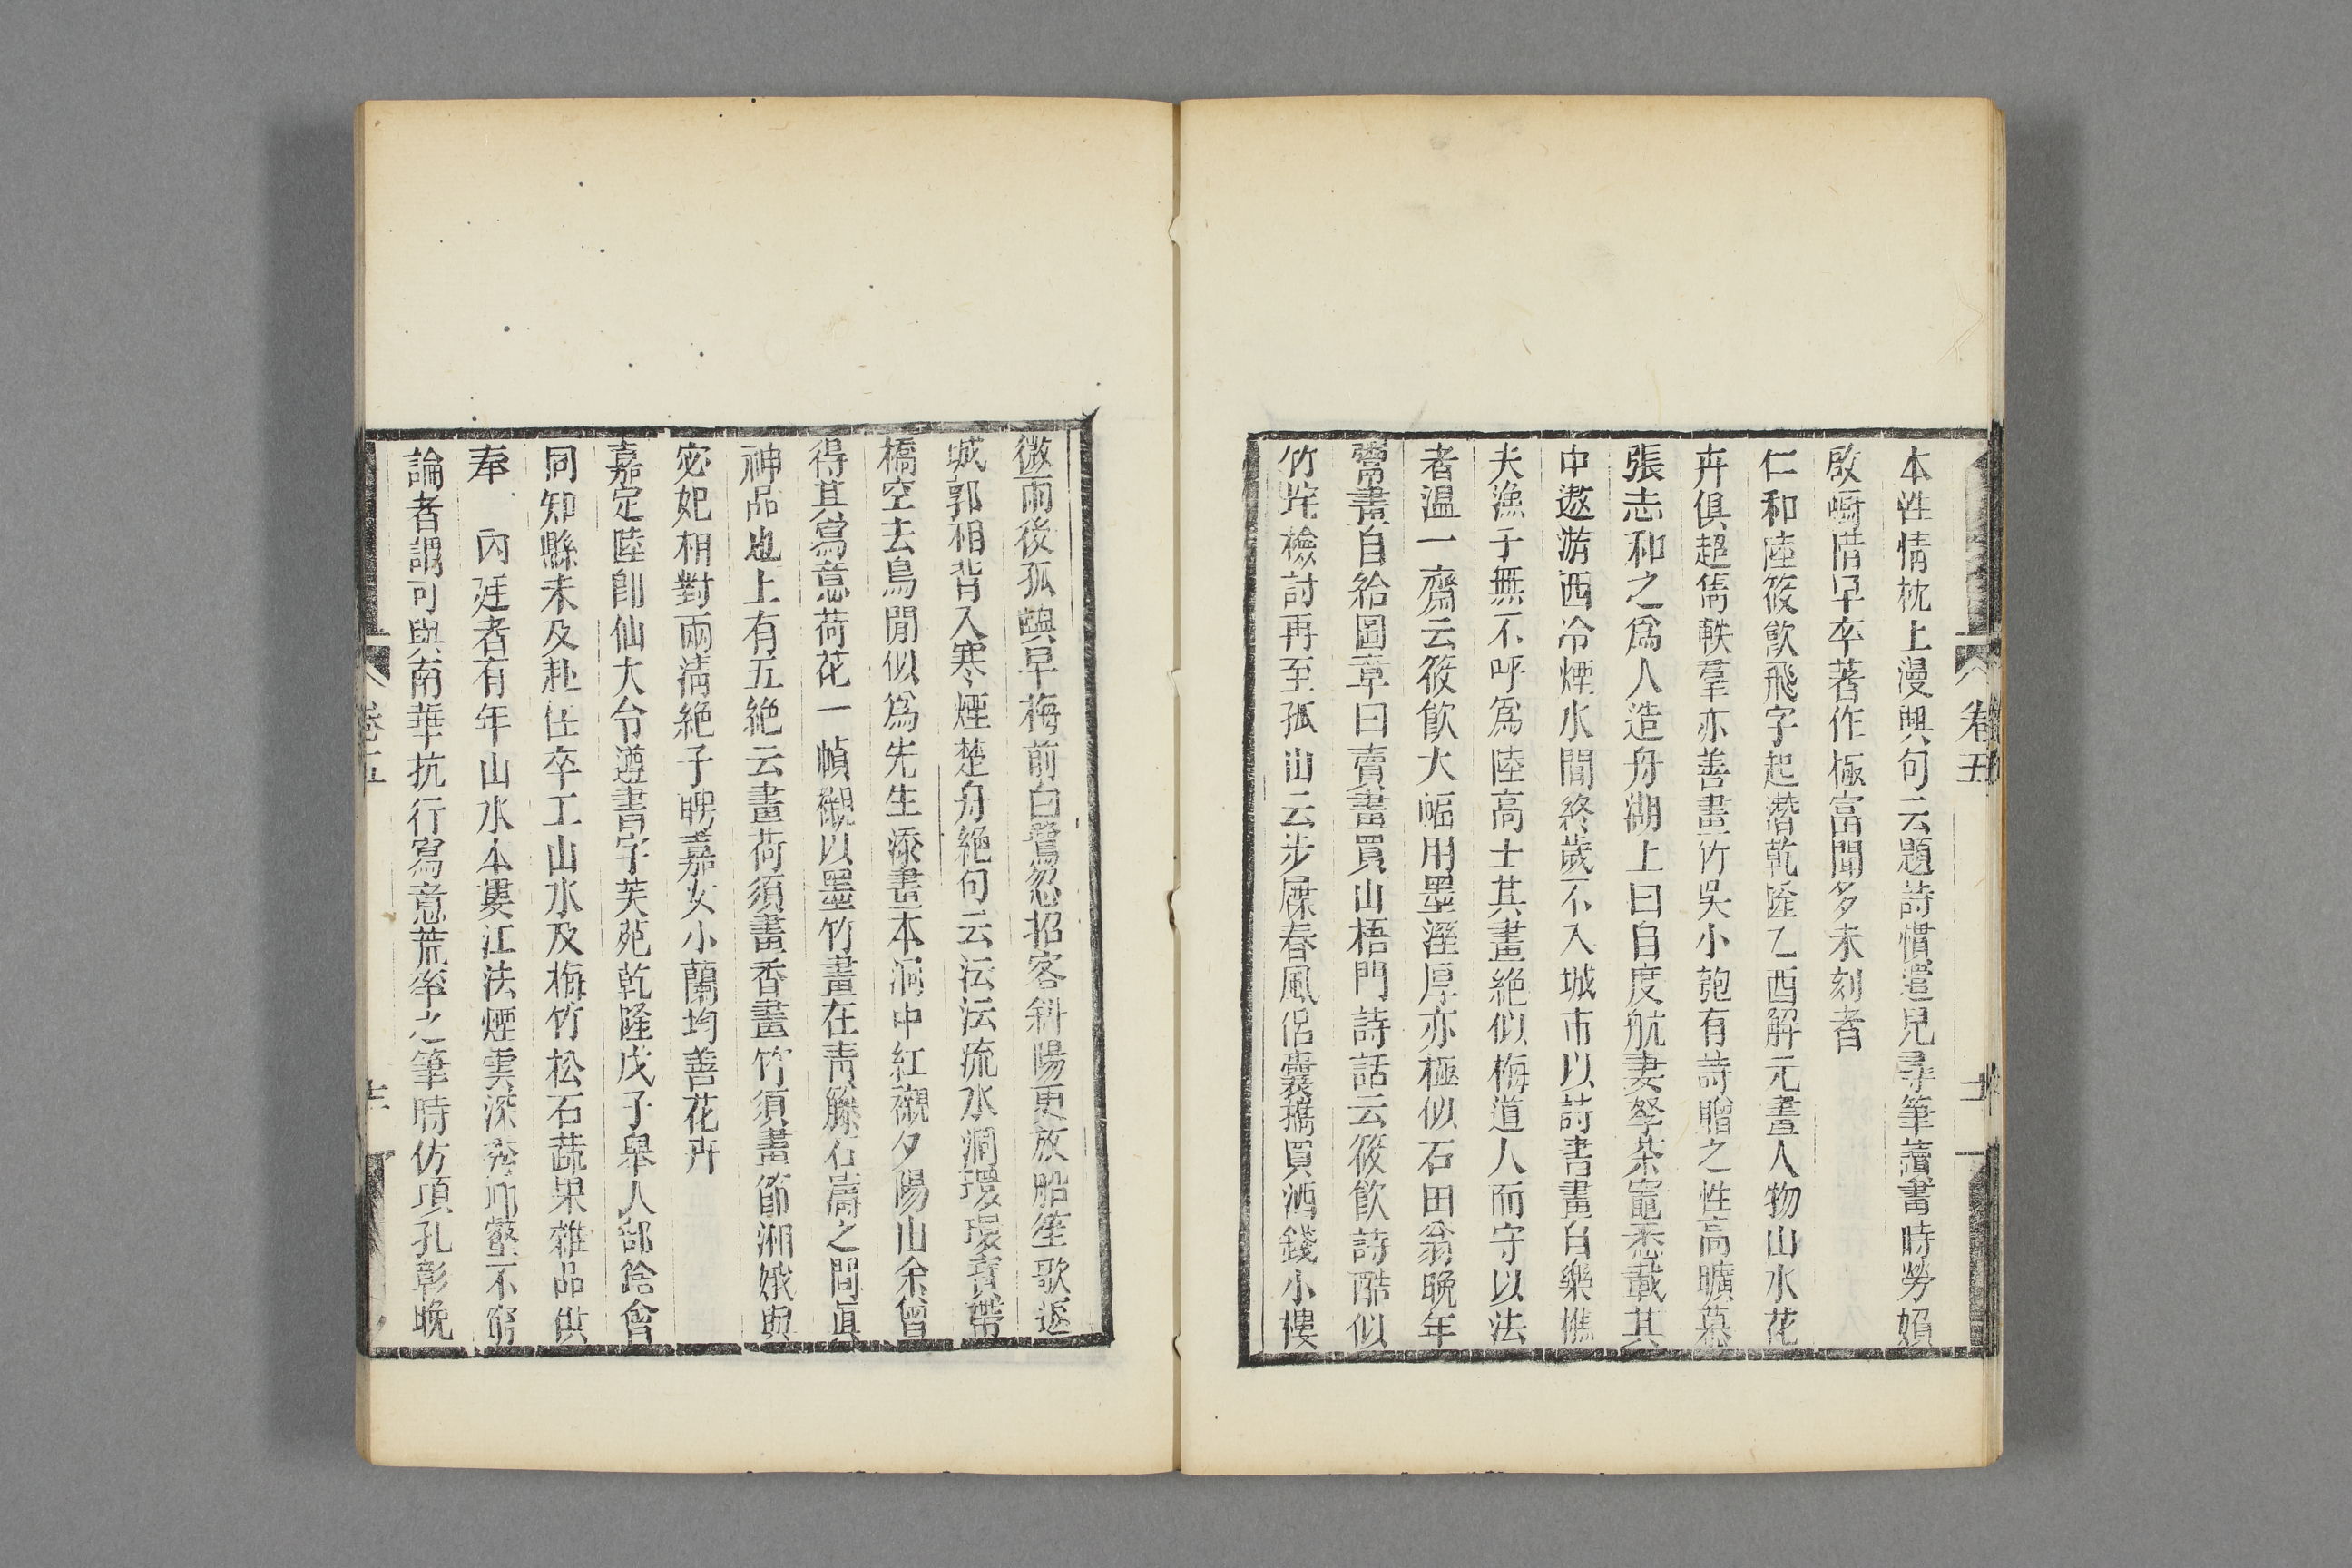 卷五
十一
本性情枕上漫興句云題詩慣遣兒尋筆讀書時勞媍
啟㕑惜早卒著作極富聞多未刻者
仁和陸筱飲飛字起潛乾隆乙酉解元畫人物山水花
卉俱超雋軼羣亦善畫竹吳小匏有詩贈之性高曠慕
張志和之爲人造舟湖上曰自度航妻孥茶竈悉載其
中遨游西冷煙水間終歲不入城市以詩書畫自樂樵
夫漁于無不呼爲陸高士其畫絶似梅道人而守以法
者温一齋云筱飲大幅用墨溼厚亦極似石田翁晚年
鬻畫自給圖章曰賣畫買山梧門詩話云筱飲詩酷似
竹垞檢討再至孤山云步屧春風侶囊攜買酒錢小樓
微雨後孤嶼早梅前白鷺忽招客斜陽更放船笙歌返
城郭相背入寒煙楚舟絶句云沄沄流水洞環環寶帶
橋空去鳥閒似爲先生添畫本洞中紅襯夕陽山余曾
得其寫意荷花一幀襯以墨竹畫在靑籐石濤之間眞
神品也上有五絶云畫荷須畫香畫竹須畫節湘娥與
宓妃相對兩淸絶子聘嘉女小蘭均善花卉
嘉定陸卽仙大令遵書字芙苑乾隆戊子舉人部銓會
同知縣未及赴任卒工山水及梅竹松石蔬果雜品供
奉　内廷者有年山水本婁江法煙雲深秀邱壑不窮
論者謂可與南華抗行寫意荒率之筆時仿項孔彰晚
卷五